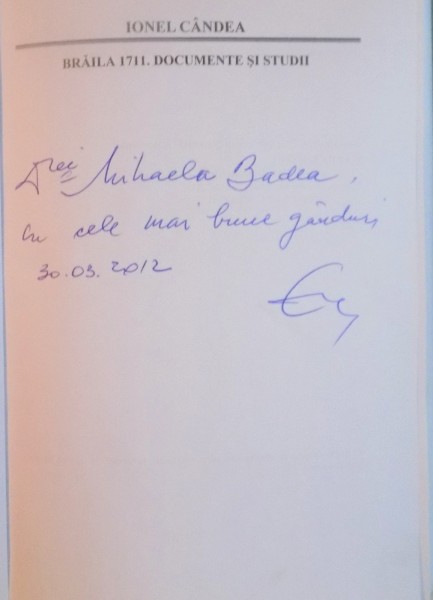 IONEL CÂNDEA
BRĂILA 1711. DOCUMENTE ȘI STUDII
Drei Mihaela Badea,
cu cele mai bune gânduri,
30.03.2012